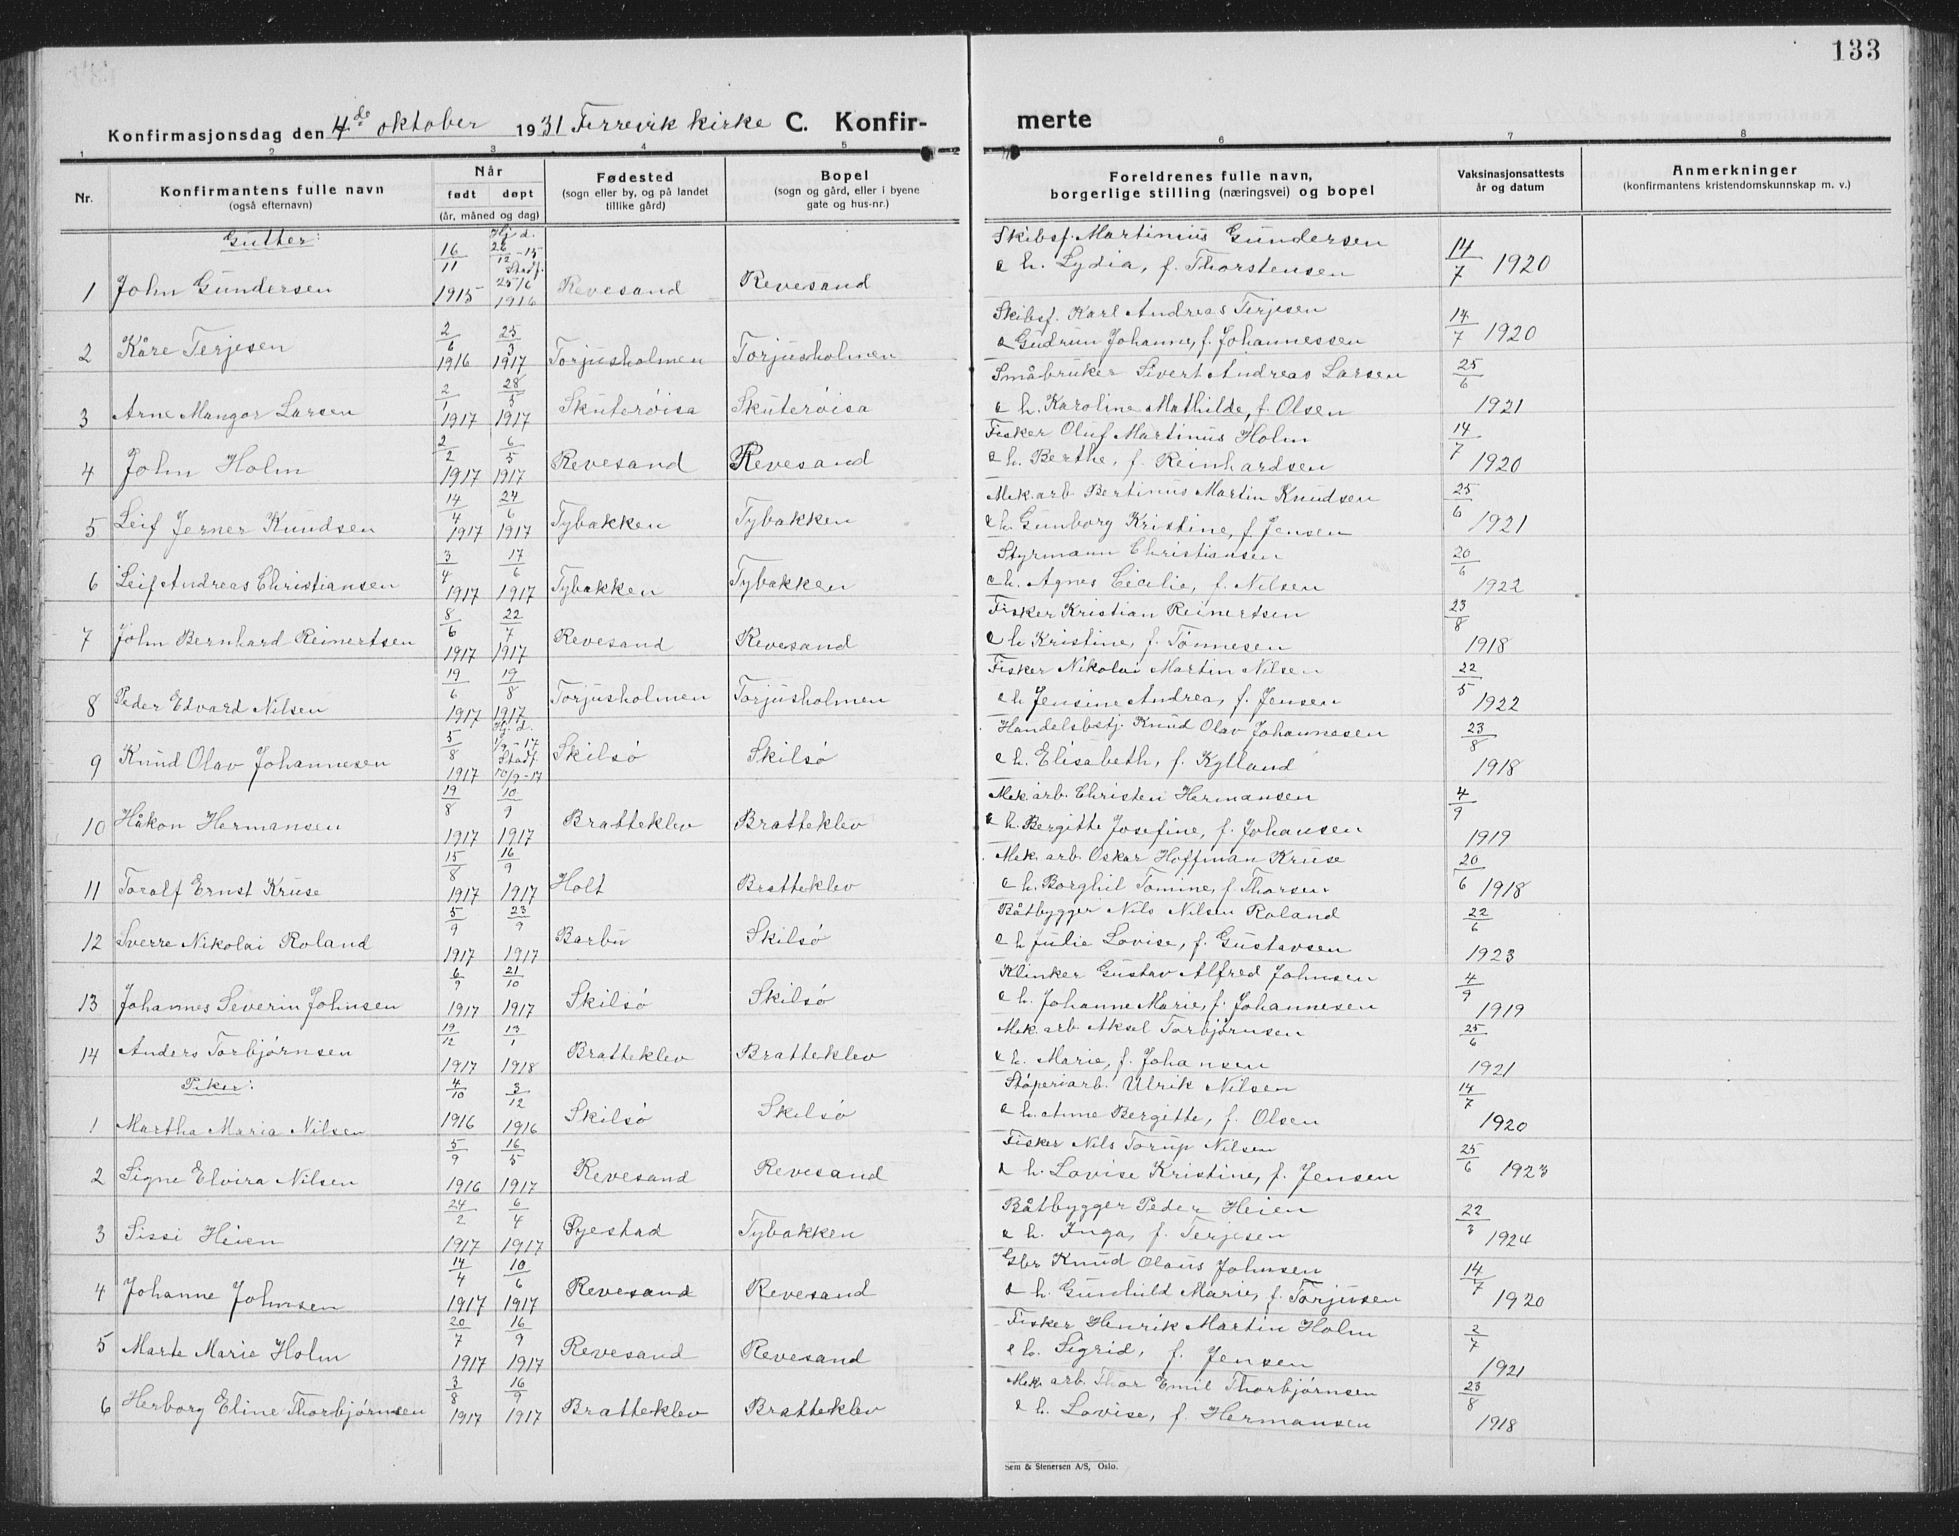 133
Konfirmasjonsdag den 4de oktober 1931 Færevik kirke C. Konfirmerte
1 2 3 4 5 6 7 8
Nr. Konfirmantens fulle navn (også efternavn) Når født døpt (år, måned og dag) Fødested (sogn eller by, og på landet tillike gård) Bopel (sogn og gård, eller i byene gate og hus-nr.) Foreldrenes fulle navn, borgerlige stilling (næringsvei) og bopel Vaksinasjonsattests år og datum Anmerkninger (konfirmantens kristendomskunnskap m. v.)
Gutter:
1 John Gundersen 16/11 1915 Hj. d. 26/12-15 Stadf. 25/6 1916 Revesand Revesand Skibsf. Martinius Gundersen
e h. Lydia, f. Thorstensen 14/7 1920
2 Kåre Terjesen 2/6 1916 25/3 1917 Torjusholmen Torjusholmen Skibsf. Karl Andreas Terjesen
e Gudrun Johanne, f. Johannessen 14/7 1920
3 Arne Mangor Larsen 2/1 1917 28/5 1917 Skuterøisa Skuterøisa Småbruker Sivert Andreas Larsen
e h. Karoline Mathilde, f. Olsen 25/6 1921
4 John Holm 2/2 1917 6/5 1917 Revesand Revesand Fisker Oluf Martinus Holm
e h. Berthe, f. Reinhardsen 14/7 1920
5 Leif Jerner Knudsen 14/4 1917 24/6 1917 Tybakken Tybakken Mek. arb. Bertinus Martin Knudsen
e h. Gunborg Kristine, f. Jensen 25/6 1921
6 Leif Andreas Christiansen 3/4 1917 17/6 1917 Tybakken Tybakken Styrmann Christiansen
e h. Agnes Cicilie, f. Nilsen 20/6 1922
7 John Bernhard Reinertsen 8/6 1917 22/7 1917 Revesand Revesand Fisker Kristian Reinertsen
e h Kristine, f. Tønnesen 23/8 1918
8 Peder Edvard Nilsen 19/6 1917 19/8 1917 Torjusholmen Torjusholmen Fisker Nikolai Martin Nilsen
e h Jensine Andrea, f. Jensen 22/5 1922
9 Knud Olav Johannesen 5/8 1917 Hj. d. 1/9-17 Stadf. 10/9-17 Skilsø Skilsø Handelsbstj. Knud Olav Johannesen
e h. Elisabeth, f. Kylland 23/8 1918
10 Håkon Hermansen 19/8 1917 10/9 1917 Bratteklev Bratteklev Mek. arb. Christen Hermansen
e h. Bergitte Josefine, f. Johansen 4/9 1919
11 Toralf Ernst Kruse 15/8 1917 16/9 1917 Holt Bratteklev Mek. arb. Oskar Hoffman Kruse
e h. Borghil Tomine, f. Thorsen 20/6 1918
12 Sverre Nikolai Roland 5/9 1917 23/9 1917 Barbu Skilsø Båtbygger Nils Nilsen Roland
e h Julie Lovise, f. Gustavsen 22/6 1923
13 Johannes Severin Johnsen 6/9 1917 21/10 1917 Skilsø Skilsø Klinker Gustav Alfred Johnsen
e h. Johanne Marie, f. Johannesen 4/9 1919
14 Anders Torbjørnsen 19/12 1917 13/1 1918 Bratteklev Bratteklev Mek. arb. Aksel Torbjørnsen
e h. Marie, f. Johansen 25/6 1921
Piker:
1 Martha Maria Nilsen 4/10 1916 3/12 1916 Skilsø Skilsø Støperiarb. Ulrik Nilsen
e h. Anne Bergitte, f. Olsen 14/7 1920
2 Signe Elvira Nilsen 5/9 1916 16/5 1917 Revesand Revesand Fisker Nils Torup Nilsen
e h. Lovise Kristine, f. Jensen 25/6 1923
3 Sissi Heien 24/2 1917 6/4 1917 Øyestad Tybakken Båtbygger Peder Heien
e h. Inga, f. Terjesen 22/3 1924
4 Johanne Johnsen 14/4 1917 10/6 1917 Revesand Revesand Gbr Knud Olaus Johnsen
e h. Gunhild Marie, f. Torjusen 14/7 1920
5 Marte Marie Holm 20/7 1917 16/9 1917 Revesand Revesand Fisker Henrik Martin Holm
e h. Sigrid, f. Jensen 2/7 1921
6 Herborg Eline Thorbjørnsen 3/8 1917 16/9 1917 Bratteklev Bratteklev Mek. arb. Thor Emil Thorbjørnsen
e h. Lovise, f. Hermansen 23/8 1918
Sem & Stenersen A/S, Oslo.